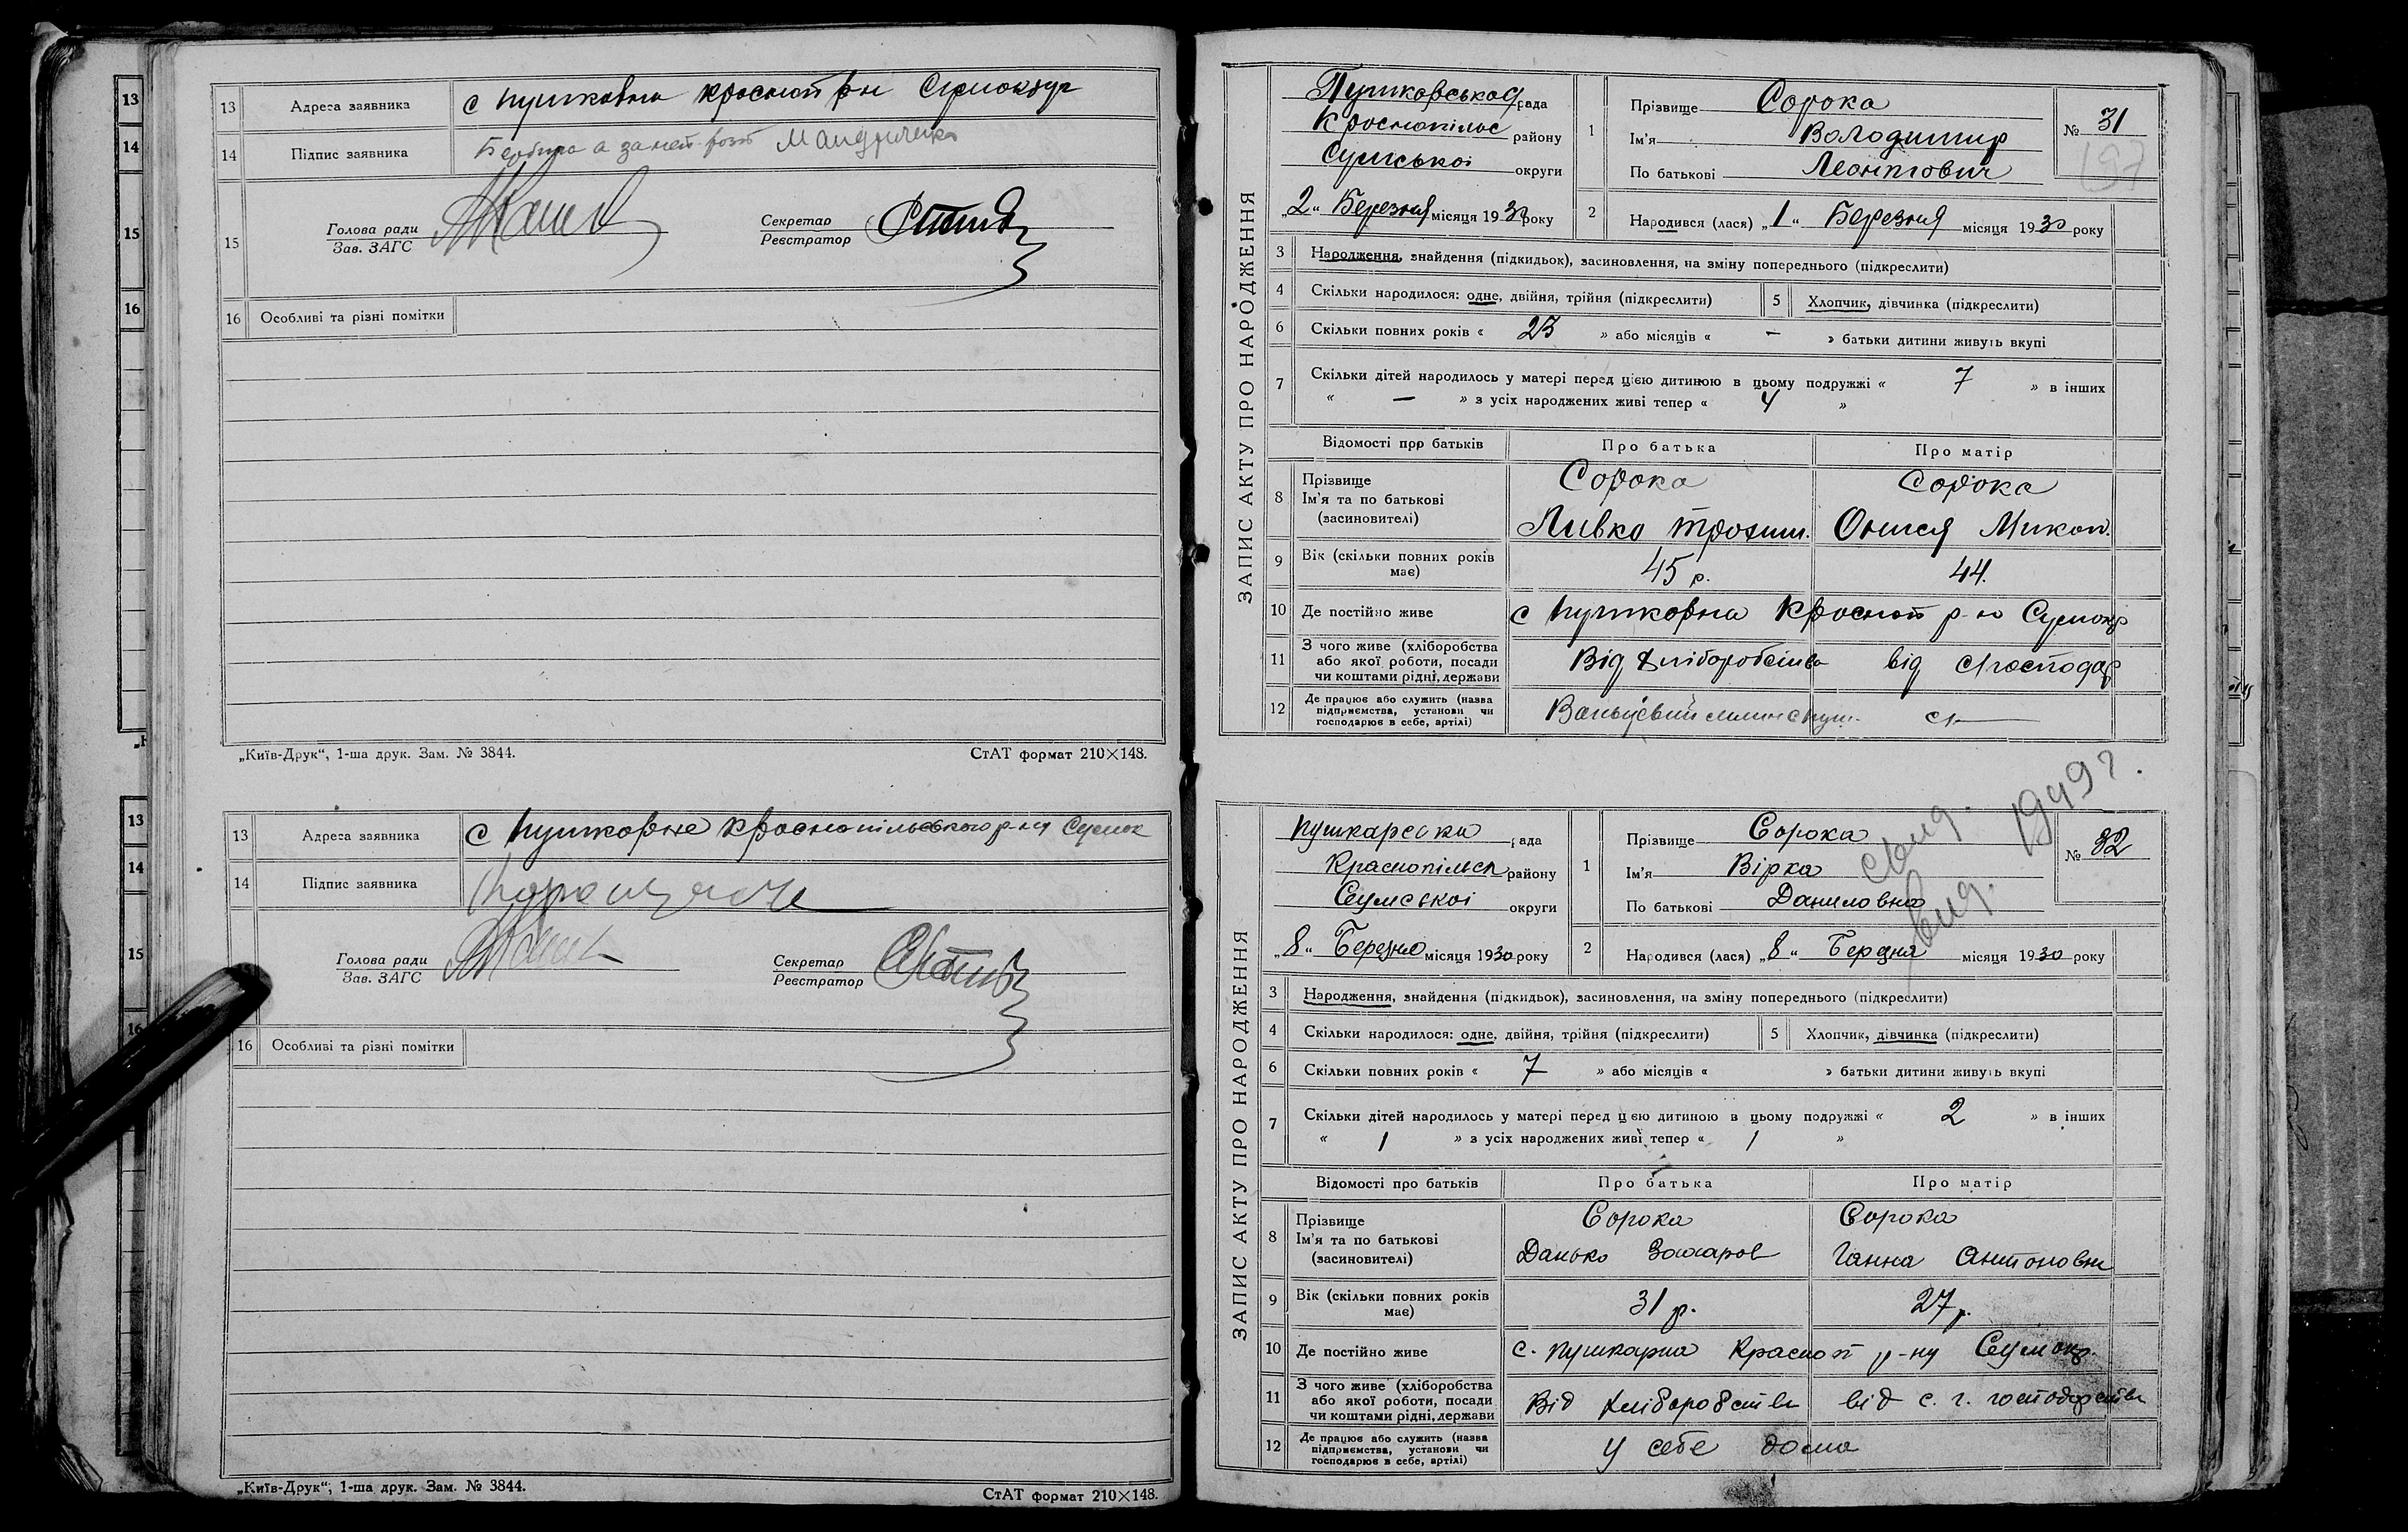 13 Адреса заявника с Пушкарна Краснот рн Сумокруг
14 Підпис заявника
15 Голова ради
Зав. ЗАГС
Секретар
Реєстратор
16 Особливі та різні помітки
„Київ-Друк“, 1-ша друк. Зам. № 3844. СтАТ формат 210×148.
13 Адреса заявника с Пушкарне Краснопільського р-ну Сумок
14 Підпис заявника
15 Голова ради
Зав. ЗАГС
Секретар
Реєстратор
16 Особливі та різні помітки
„Київ-Друк“, 1-ша друк. Зам. № 3844. СтАТ формат 210×148.
ЗАПИС АКТУ ПРО НАРОДЖЕННЯ
рада
Краснопільс району
Сумської округи
„2“ Березня місяця 1930 року
1 Прізвище Сорока
Ім'я Володимир
По батькові Леонтович
№ 31
197
2 Народився (лася) „1“ Березня місяця 1930 року
3 Народження, знайдення (підкидьок), засиновлення, на зміну попереднього (підкреслити)
4 Скільки народилося: одне, двійня, трійня (підкреслити) 5 Хлопчик, дівчинка (підкреслити)
6 Скільки повних років « 23 » або місяців « – » батьки дитини живуть вкупі
7 Скільки дітей народилось у матері перед цією дитиною в цьому подружжі « 7 » в інших
« — » з усіх народжених живі тепер « 4 »
Відомості про батьків Про батька Про матір
8 Прізвище
Ім'я та по батькові
(засиновителі)
Сорока Сорока
Левко Трохим. Онися Микол.
9 Вік (скільки повних років має) 45 р. 44.
10 Де постійно живе с Пушкарна Краснот р-ю Сумокр
11 З чого живе (хліборобства або якої роботи, посади чи коштами рідні, держави Від хліборобства від с/господар
12 Де працює або служить (назва підприємства, установи чи господарює в себе, артілі)
ЗАПИС АКТУ ПРО НАРОДЖЕННЯ
Пушкарська рада
Краснопільск району
Сумської округи
„8“ Березня місяця 1930 року
1 Прізвище Сорока
Ім'я Вірка
По батькові Даниловна
№ 32
Вид. свид. 1949 г.
2 Народився (лася) „8“ Березня місяця 1930 року
3 Народження, знайдення (підкидьок), засиновлення, на зміну попереднього (підкреслити)
4 Скільки народилося: одне, двійня, трійня (підкреслити) 5 Хлопчик, дівчинка (підкреслити)
6 Скільки повних років « 7 » або місяців « » батьки дитини живуть вкупі
7 Скільки дітей народилось у матері перед цією дитиною в цьому подружжі « 2 » в інших
« 1 » з усіх народжених живі тепер « 1 »
Відомості про батьків Про батька Про матір
8 Прізвище
Ім'я та по батькові
(засиновителі)
Сорока Сорока
Данько Захаров Ганна Антоновна
9 Вік (скільки повних років має) 31 р. 27 р.
10 Де постійно живе с. Пушкарна Краснот р-ну Сумокр.
11 З чого живе (хліборобства або якої роботи, посади чи коштами рідні, держави Від хліборобства від с. г. господарства
12 Де працює або служить (назва підприємства, установи чи господарює в себе, артілі) У себе дома